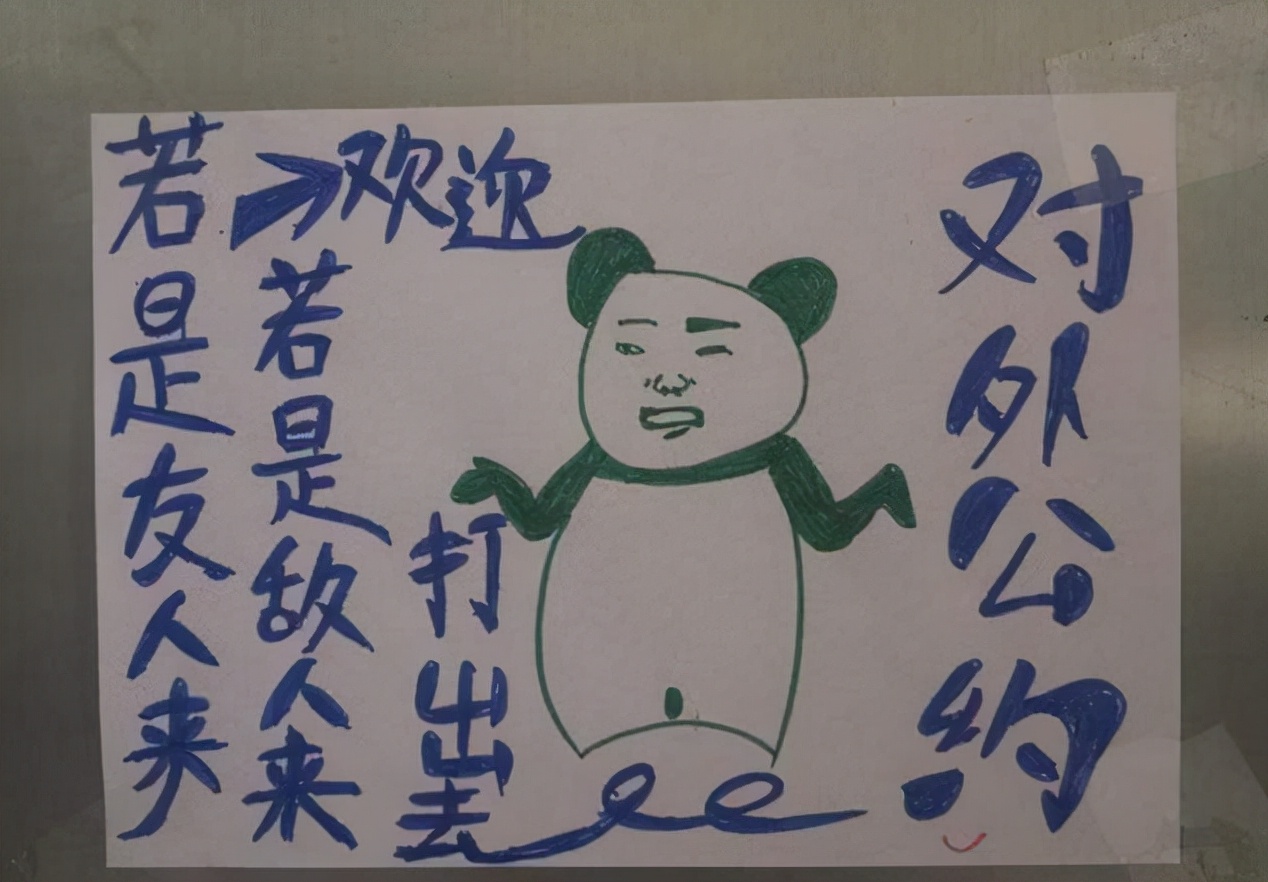 对外公约
若是友人来
欢迎
若是敌人来
打出去